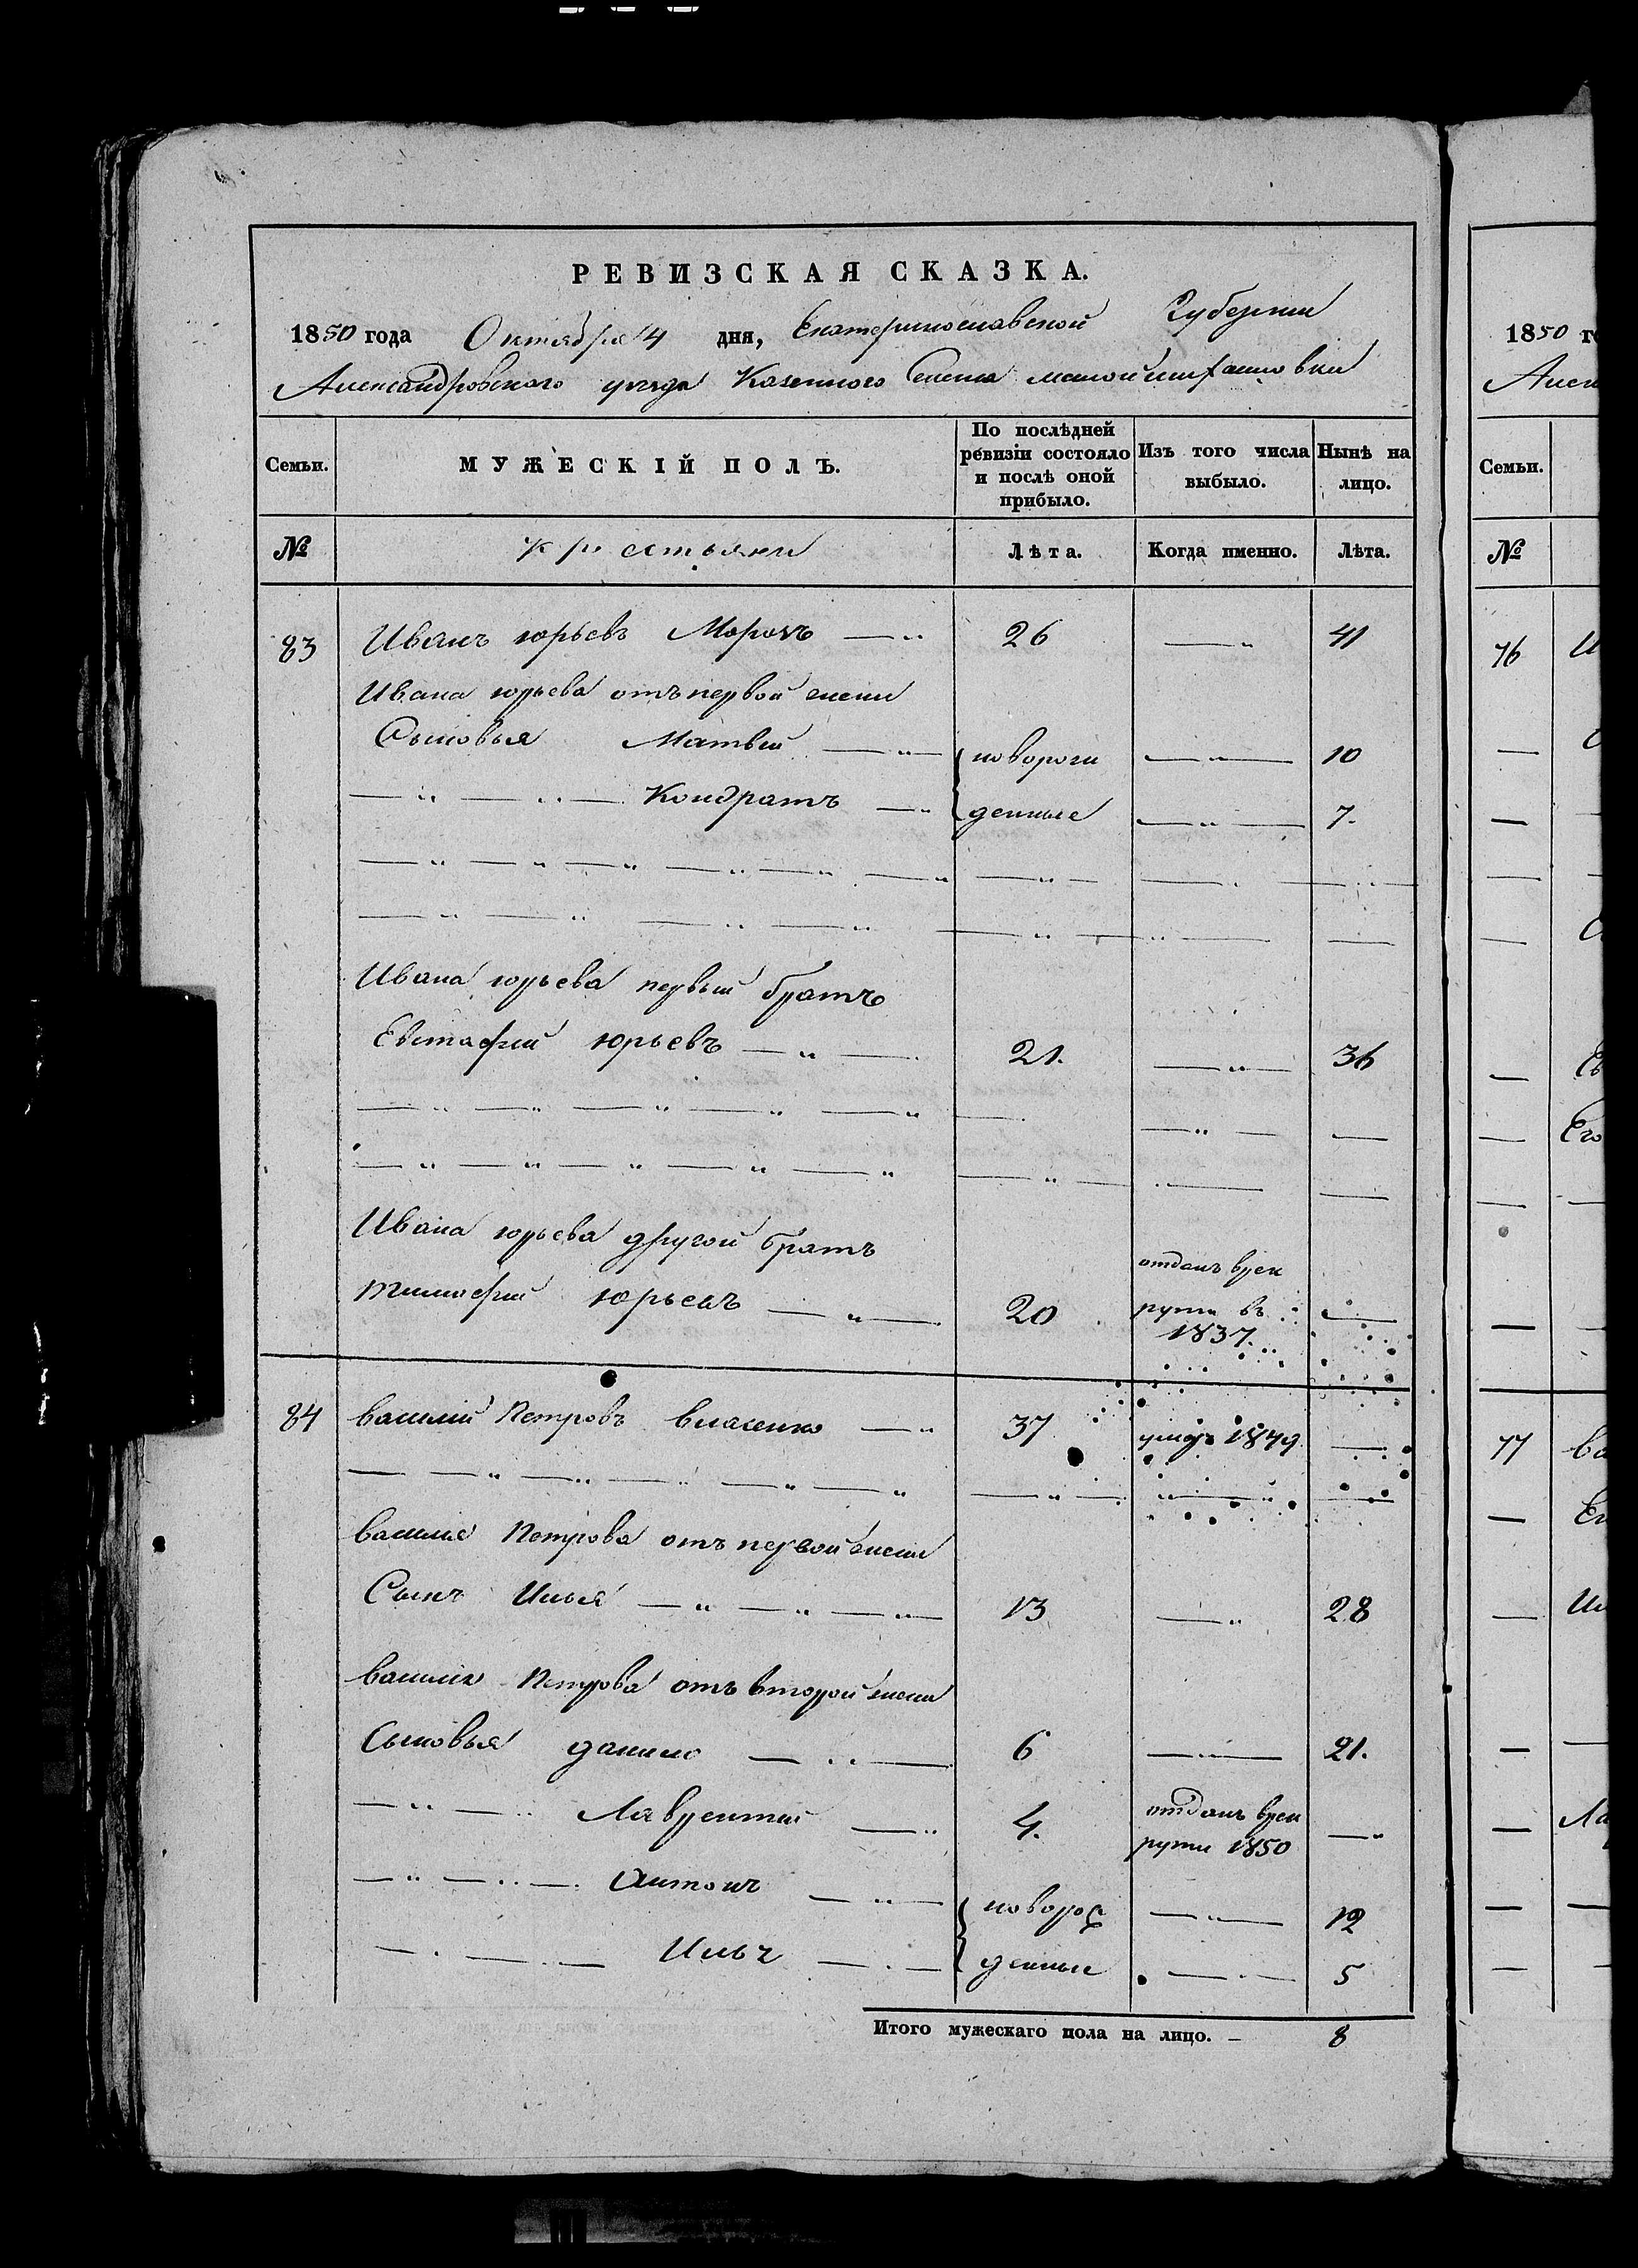 РЕВИЗСКАЯ СКАЗКА.
1850 года Октября 4 дня, Екатеринославской Губернии
Александровского уезда Казенного Селения малой
Семьи.
МУЖЕСКІЙ ПОЛЪ.
По послѣдней ревизіи состояло и послѣ оной прибыло.
Изъ того числа выбыло.
Нынѣ на лицо.
№ крестьяни Лѣта. Когда именно. Лѣта.
83 Иванъ юрьевъ Морозъ 26 41
Ивана юрьева отъ первой жены
Сыновья Матвей новорож 10
Кондратъ денные 7.
Ивана юрьева первый братъ
Евстафий юрьевъ 21. 36
Ивана юрьева другой братъ
Тимофей юрьевъ 20 отданъ врек
руты въ
1837.
84 Василий Петровъ Власенко 37 1849
Василия Петрова отъ первой жены
Сынъ Илья 13 28
Василия Петрова отъ второй жены
Сыновья данило 6 21.
Лаврентий 4. отданъ врек
руты 1850
Антонъ новорож 12
Илья денные 5
Итого мужескаго пола на лицо. – 8
1850 го
Алек
Семьи.
№
76 И
77 Ва
Ил
Ла